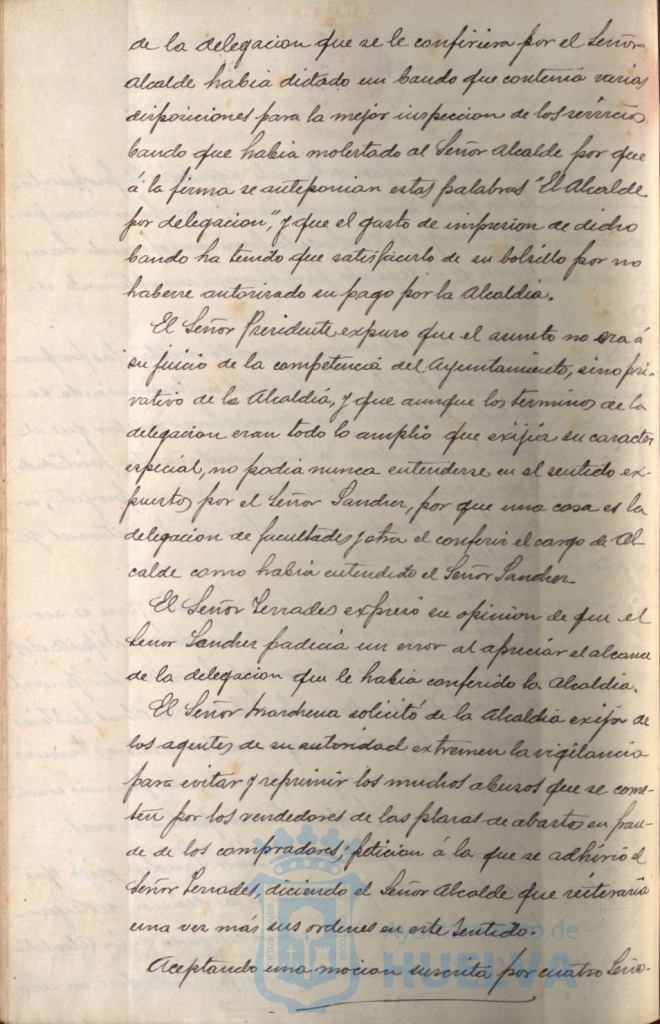 de la delegacion que se le confiriera por el Señor
Alcalde habia dictado un bando que contenia varias
disposiciones para la mejor inspeccion de los servicios
bando que habia molestado al Señor Alcalde por que
á la firma se anteponian estas palabras "El Alcalde
por delegacion", y que el gasto de impresion de dicho
bando ha tenido que satisfacerlo de su bolsillo por no
haberse autorizado su pago por la Alcaldia.
El Señor Presidente expuso que el asunto no era á
su juicio de la competencia del Ayuntamiento, sino pri-
vativo de la Alcaldia, y que aunque los terminos de la
delegacion eran todo lo amplio que exijia su caracter
especial, no podia nunca entenderse en el sentido ex-
puesto por el Señor Sanchez, por que una cosa es la
delegacion de facultades y otra el conferir el cargo de Al-
calde como habia entendido el Señor Sanchez.
El Señor Terrades expresó su opinion de que el
Señor Sanchez padecia un error al apreciar el alcance
de la delegacion que le habia conferido la Alcaldia.
El Señor Marchena solicitó de la Alcaldia exija de
los agentes de su autoridad extremen la vigilancia
para evitar y reprimir los muchos abusos que se come-
ten por los vendedores de las plazas de abastos en frau-
de de los compradores; peticion á la que se adhirió el
Señor Terrades, diciendo el Señor Alcalde que reiteraria
una vez más sus ordenes en este sentido.
Aceptando una mocion suscrita por cuatro Seño-
Ayuntamiento de
HUELVA